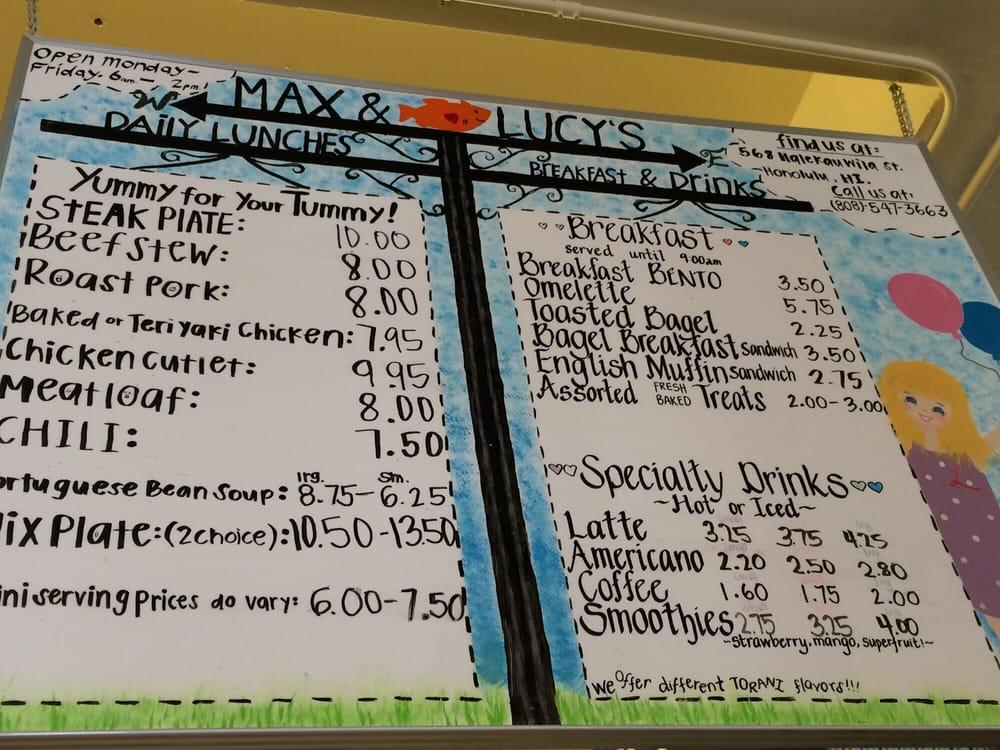 Open monday-
Friday. 6am - 2pm!
W
MAX & LUCY'S
E
DAILY LUNCHES
BREAKFAST & Drinks
find us at:
568 Halekauwila st.
Honolulu, HI.
Call us at:
(808)-547-3663
Yummy for Your Tummy!
STEAK PLATE: 10.00
Beef Stew: 8.00
Roast Pork: 8.00
Baked or Teriyaki Chicken: 7.95
Chicken Cutlet: 9.95
Meatloaf: 8.00
CHILI: 7.50
lrg. Sm.
ortuguese Bean Soup: 8.75-6.25
ix Plate:(2choice):10.50-13.50
ini serving prices do vary: 6.00-7.50
Breakfast
served until 9:00am
Breakfast BENTO 3.50
Omelette 5.75
Toasted Bagel 2.25
Bagel Breakfast sandwich 3.50
English Muffin sandwich 2.75
Assorted FRESH BAKED Treats 2.00-3.00
Specialty Drinks
~Hot or Iced~
Latte 3.25 3.75 4.25
Americano 2.20 2.50 2.80
Coffee 1.60 1.75 2.00
Smoothies 2.75 3.25 4.00
~strawberry, mango, superfruit!~
we offer different TORANI flavors!!!
L